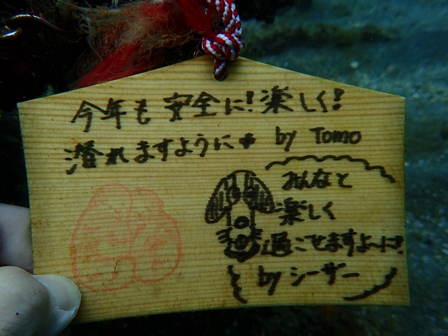 今年も安全に!楽しく!
潜れますように by Tomo
みんなと
楽しく
過ごせますよーに!
by シーザー